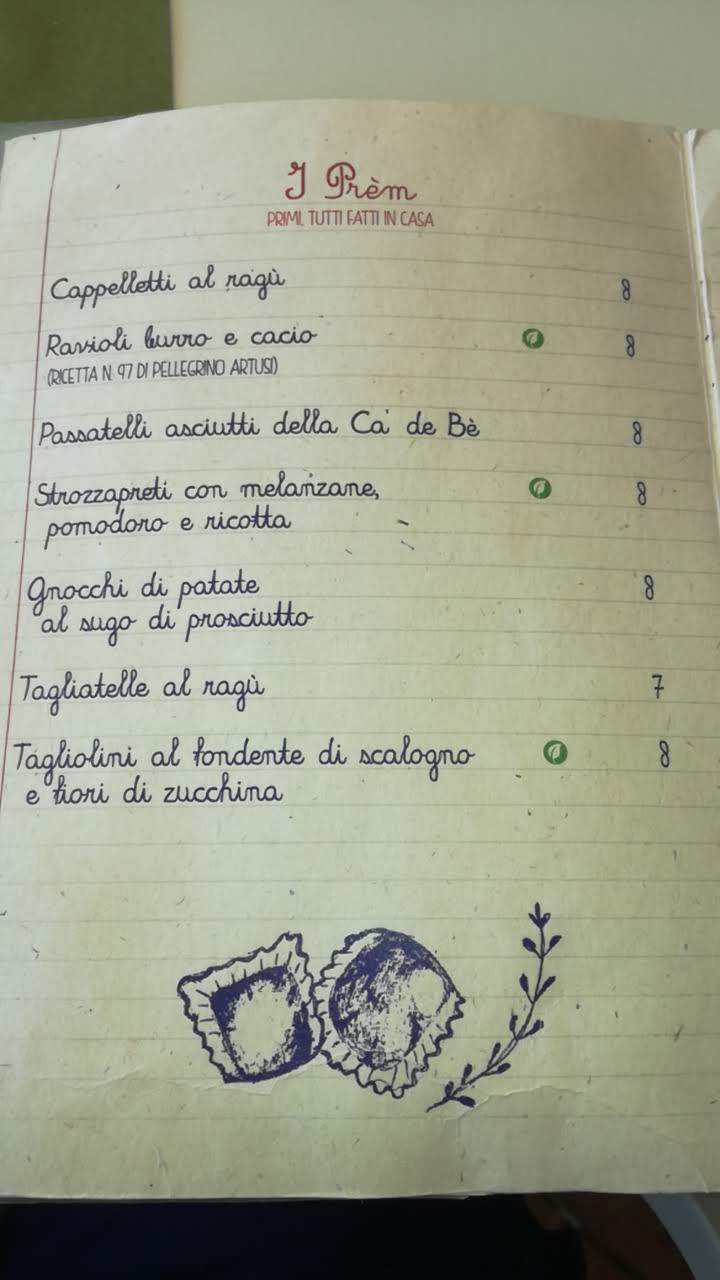 I Prèm
PRIMI, TUTTI FATTI IN CASA
Cappelletti al ragù 8
Ravioli burro e cacio 8
(RICETTA N. 97 DI PELLEGRINO ARTUSI)
Passatelli asciutti della Ca' de Bè 8
Strozzapreti con melanzane, 8
pomodoro e ricotta
Gnocchi di patate 8
al sugo di prosciutto
Tagliatelle al ragù 7
Tagliolini al fondente di scalogno 8
e fiori di zucchina